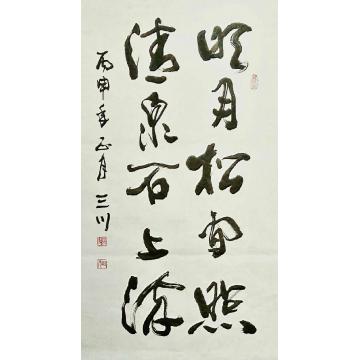 明月松间照
清泉石上流
丙申年正月三川